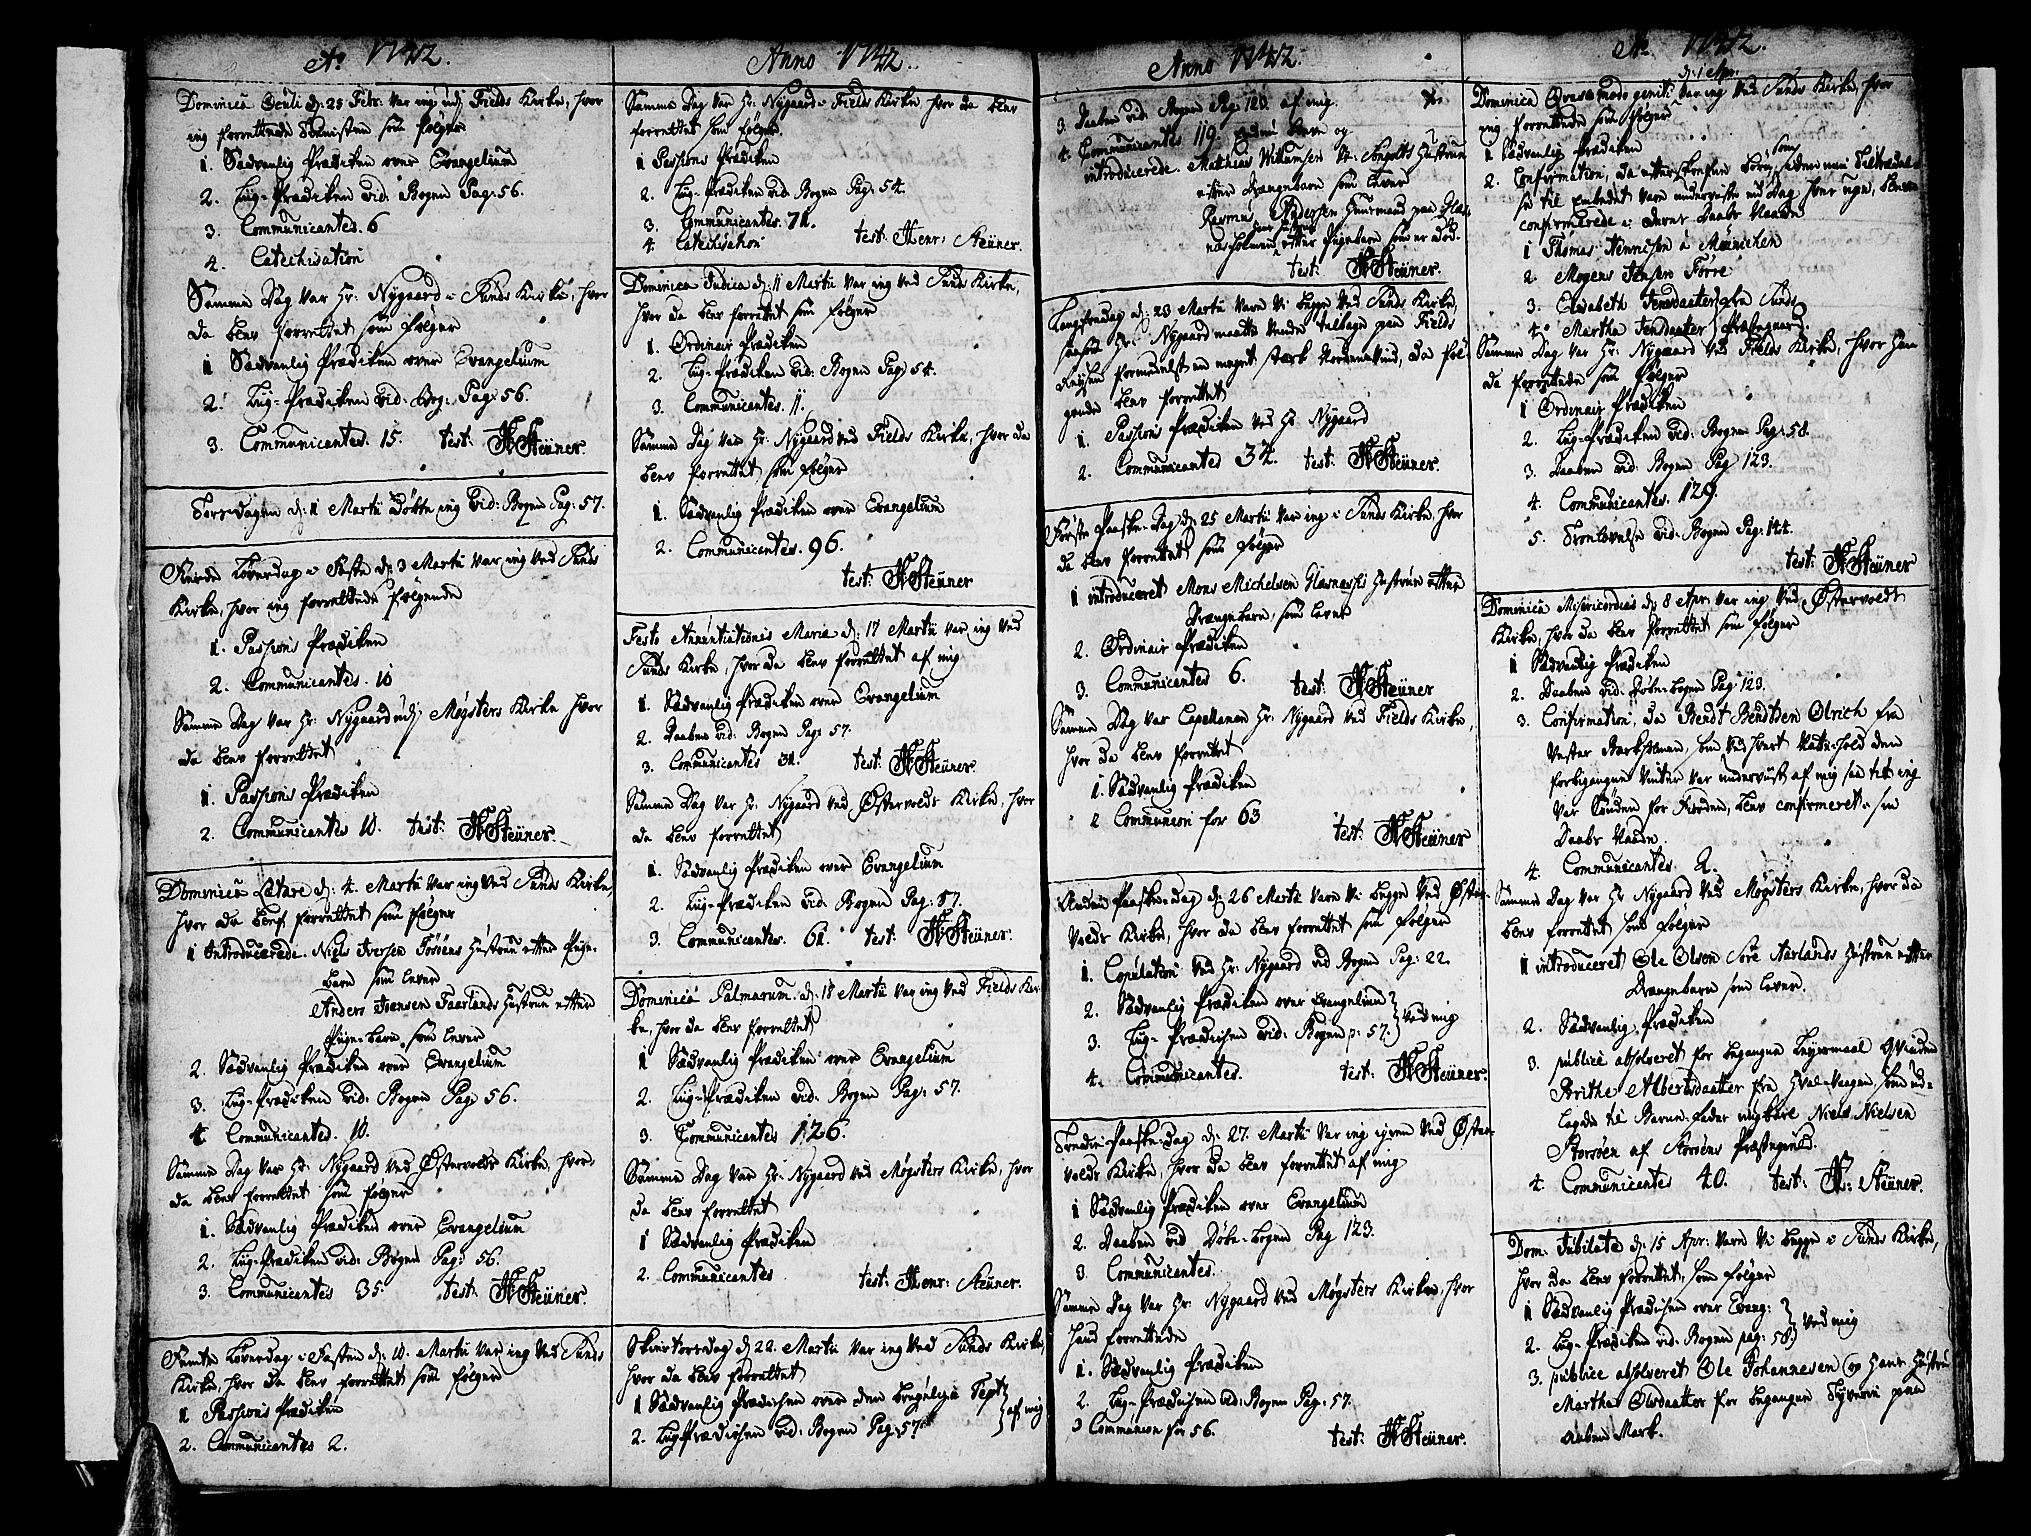 Ao 1742.
Dominica Oculi d: 25 Febr: var ieg udj Fields Kirke, hvor
ieg forrettede Tienisten som følger
1. Sædvanlig Prædiken over Evangelium
2. Liig-Prædiken vid: Bogen Pag: 56.
3. Communicantes. 6
4. Catechisation
Samme Dag var Hr: Nygaard i Sunds Kirke, hvor
da blev forrettet som følger
1 Sædvanlig Prædiken over Evangelium
2. Liig-Prædiken vid: Bog: Pag: 56.
3. Communicantes. 15. test: H Steüner.
Torsdagen d: 1 Martii Døbte ieg vid: Bogen Pag: 57.
Fierde Løverdag i Faste d: 3 Martii var ieg ved Sunds
Kirke, hvor ieg forrettede følgende
1. Passions Prædiken
2. Communicantes. 10
Samme Dag var Hr: Nygaard udj Møgsters Kirke hvor
da blev forrettet
1. Passions Prædiken
2. Communicantes 10. test: H Steüner.
Dominica Lætare d: 4. Martii var ieg ved Sunds Kirke,
hvor da blev forrettet som følger
1 Introducerede. Niels Iversen Hustrue efter Pige-
Barn som lever
Anders Jansen Hustrue efter
Pige-Barn som lever
2. Sædvanlig Prædiken over Evangelium
3. Liig-Prædiken vid: Bogen Pag: 56.
4. Communicantes. 10.
Samme Dag var Hr: Nygaard ved Østervolds Kirke, hvor
da blev forrettet som følger
1. Sædvanlig Prædiken over Evangelium
2. Liig-Prædiken vid: Bogen Pag: 56.
3. Communicantes 35. test: H Steüner.
Femte Løverdag i Fasten d: 10. Martii var ieg ved Sunds
Kirke, hvor da blev forrettet som følger
1 Passions Prædiken
2. Communicantes 2.
Anno 1742.
Samme Dag var Hr: Nygaard i Fields Kirke, hvor da blev
forrettet som følger.
1 Passions Prædiken
2. Liig-Prædiken vid: Bogen Pag: 54.
3. Communicantes. 71.
4. Catechisation test: Henr: Steüner.
Dominica Judica d: 11 Martii var ieg ved Sunds Kirke,
hvor da blev forrettet som følger
1. Ordinair Prædiken
2. Liig-Prædiken vid: Bogen Pag: 54.
3. Communicantes. 11.
Samme Dag var Hr: Nygaard ved Fields Kirke, hvor da
blev forrettet som følger
1. Sædvanlig Prædiken over Evangelium
2. Communicantes. 96.
test: H Steüner
Festo Annuntiationis Mariæ d: 17 Martii var ieg ved
Sunds Kirke, hvor da blev forrettet af mig
1. Sædvanlig Prædiken over Evangelium
2. Daaben vid: Bogen Pag: 57.
3. Communicantes 31. test: H Steüner.
Samme Dag var Hr: Nygaard ved Østervolds Kirke, hvor
da blev forrettet
1. Sædvanlig Prædiken over Evangelium
2. Liig-Prædiken vid: Bogen Pag: 57.
3. Communicantes. 61. test: H Steüner.
Dominica Palmarum. d: 18 Martii var ieg ved Fields Kir-
ke, hvor da blev forrettet
1 Sædvanlig Prædiken over Evangelium
2. Liig-Prædiken vid: Bogen Pag: 57.
3. Communicantes 126.
Samme Dag var Hr: Nygaard ved Møgsters Kirke, hvor
da blev forrettet
1 Sædvanlig Prædiken
2. Communicantes test: Henr: Steüner.
Skiertorsdag d: 22. Martii var ieg ved Sunds Kirke,
hvor da blev forrettet
1 Sædvanlig Prædichen over dend Text
2. Liig-Prædichen vid: Bogen Pag: 57 af mig
Anno 1742.
3. Daaben vid: Bogen Pag: 123. af mig.
4. Communicantes 119
introducerede. Mathias Willumsen Hustrue
efter Drængebarn som lever
Rasmus Pedersen Huusmand paa
efter Pigebarn som er død.
test: H Steüner.
Langfredag d: 23 Martii vare vi begge ved Sunds Kirke,
Hr: Nygaard maatte vende tilbage paa Fields
Reysen formedelst en meget stærk Nordenvind, da føl-
gende blev forrettet
1. Passions Prædiken ved Hr: Nygaard
2. Communicantes 34. test: H Steüner.
Første Paaske-Dag d: 25 Martii var ieg i Sunds Kirke, hvor
da blev forrettet som følger
1 introduceret Mons Michelsen Hustrue efter
Drængebarn, som lever
2. Ordinair Prædiken
3. Communicantes 6. test: H Steüner
Samme Dag var Capellanen Hr: Nygaard ved Fields Kirke,
hvor da blev forrettet
1. Sædvanlig Prædiken
2 Communion for 63
test: H Steüner
Anden Paaske-Dag d: 26 Martii vare vi begge ved Øster-
volds Kirke, hvor da blev forrettet som følger
1. Copulation ved Hr: Nygaard vid Bogen Pag: 22.
2. Sædvanlig Prædiken over Evangelium
3. Liig-Prædichen vid: Bogen p: 57. ved mig
4. Communicantes. test: H Steüner.
Tredie Paaske-Dag d: 27. Martii var ieg igien ved Øster-
volds Kirke, hvor da blev forrettet af mig
1 Sædvanlig Prædiken over Evangelium
2. Daaben vid Døbe-Bogen Pag 123.
3 Communicantes.
Samme Dag var Hr: Nygaard ved Møgsters Kirke, hvor
hand forrettede
1. Sædvanlig Prædiken
2. Liig-Prædichen vid: Bogen Pag: 57.
3 Communion for 56. test: H Steüner.
Ao 1742.
d: 1 Apr:
Dominica Qvasimodo geniti var ieg ved Sunds Kirke, hvor
ieg forrettede som følger
1 Sædvanlig Prædiken
2. Confirmation, da efterskrefne Børn, som siden min Tiltrædel-
se til Embedet vare underviste en Dag hver uge, bleve
confirmerede i deres Daabs Naade
1 Thomas Hennichsen à Münichen
2 Mogens Jensen Førre
3. Elisabeth Jensdaatter fra Sunds
4. Martha Jensdaatter Præstegaard.
Samme Dag var Hr: Nygaard ved Fields Kirke, hvor han
da forrettede som følger
1 Ordinair Prædiken
2. Liig-Prædiken vid: Bogen Pag: 58.
3. Daaben vid: Bogen Pag 123.
4. Communicantes. 129.
5. Trolovelse vid: Bogen Pag: 144.
test: H Steüner
Dominica Misericordias d: 8 Apr: var ieg ved Østervolds
Kirke, hvor da blev forrettet som følger
1 Sædvanlig Prædiken
2. Daaben vid: Døbe-Bogen Pag: 123.
3. Confirmation, da Bendt Bendtsen Olrich fra
Vester
forbigangne Vinter var underviist af mig
blev confirmeret i sin
Daabs Naade.
4. Communicantes. 2.
Samme Dag var Hr: Nygaard ved Møgsters Kirke, hvor da
blev forrettet som følger
1 introduceret Ole Olsen Hustrue efter
Drængebarn som lever.
2. Sædvanlig Prædiken
3. publicè absolveret for begangne Leyermaal Qvinden
Brithe Albertsdaatter fra Hval-Vaagen, som ud-
lagde til Barne-Fader ungkarl Niels Nielsen
Storsöen af Storöens Præstegield.
4. Communicantes 40. test: H: Steüner.
Dom. Jubilate d: 15 Apr: vare vi begge i Sunds Kirke,
hvor da blev forrettet, som følger
1 Sædvanlig Prædichen over Evang:
2. Liig-Prædiken vid: Bogen pag: 58 ved mig
3. publice absolveret Ole Johannesen og hans Hustru
Martha Olsdaatter for begangen Tyverie paa
aaben Mark.